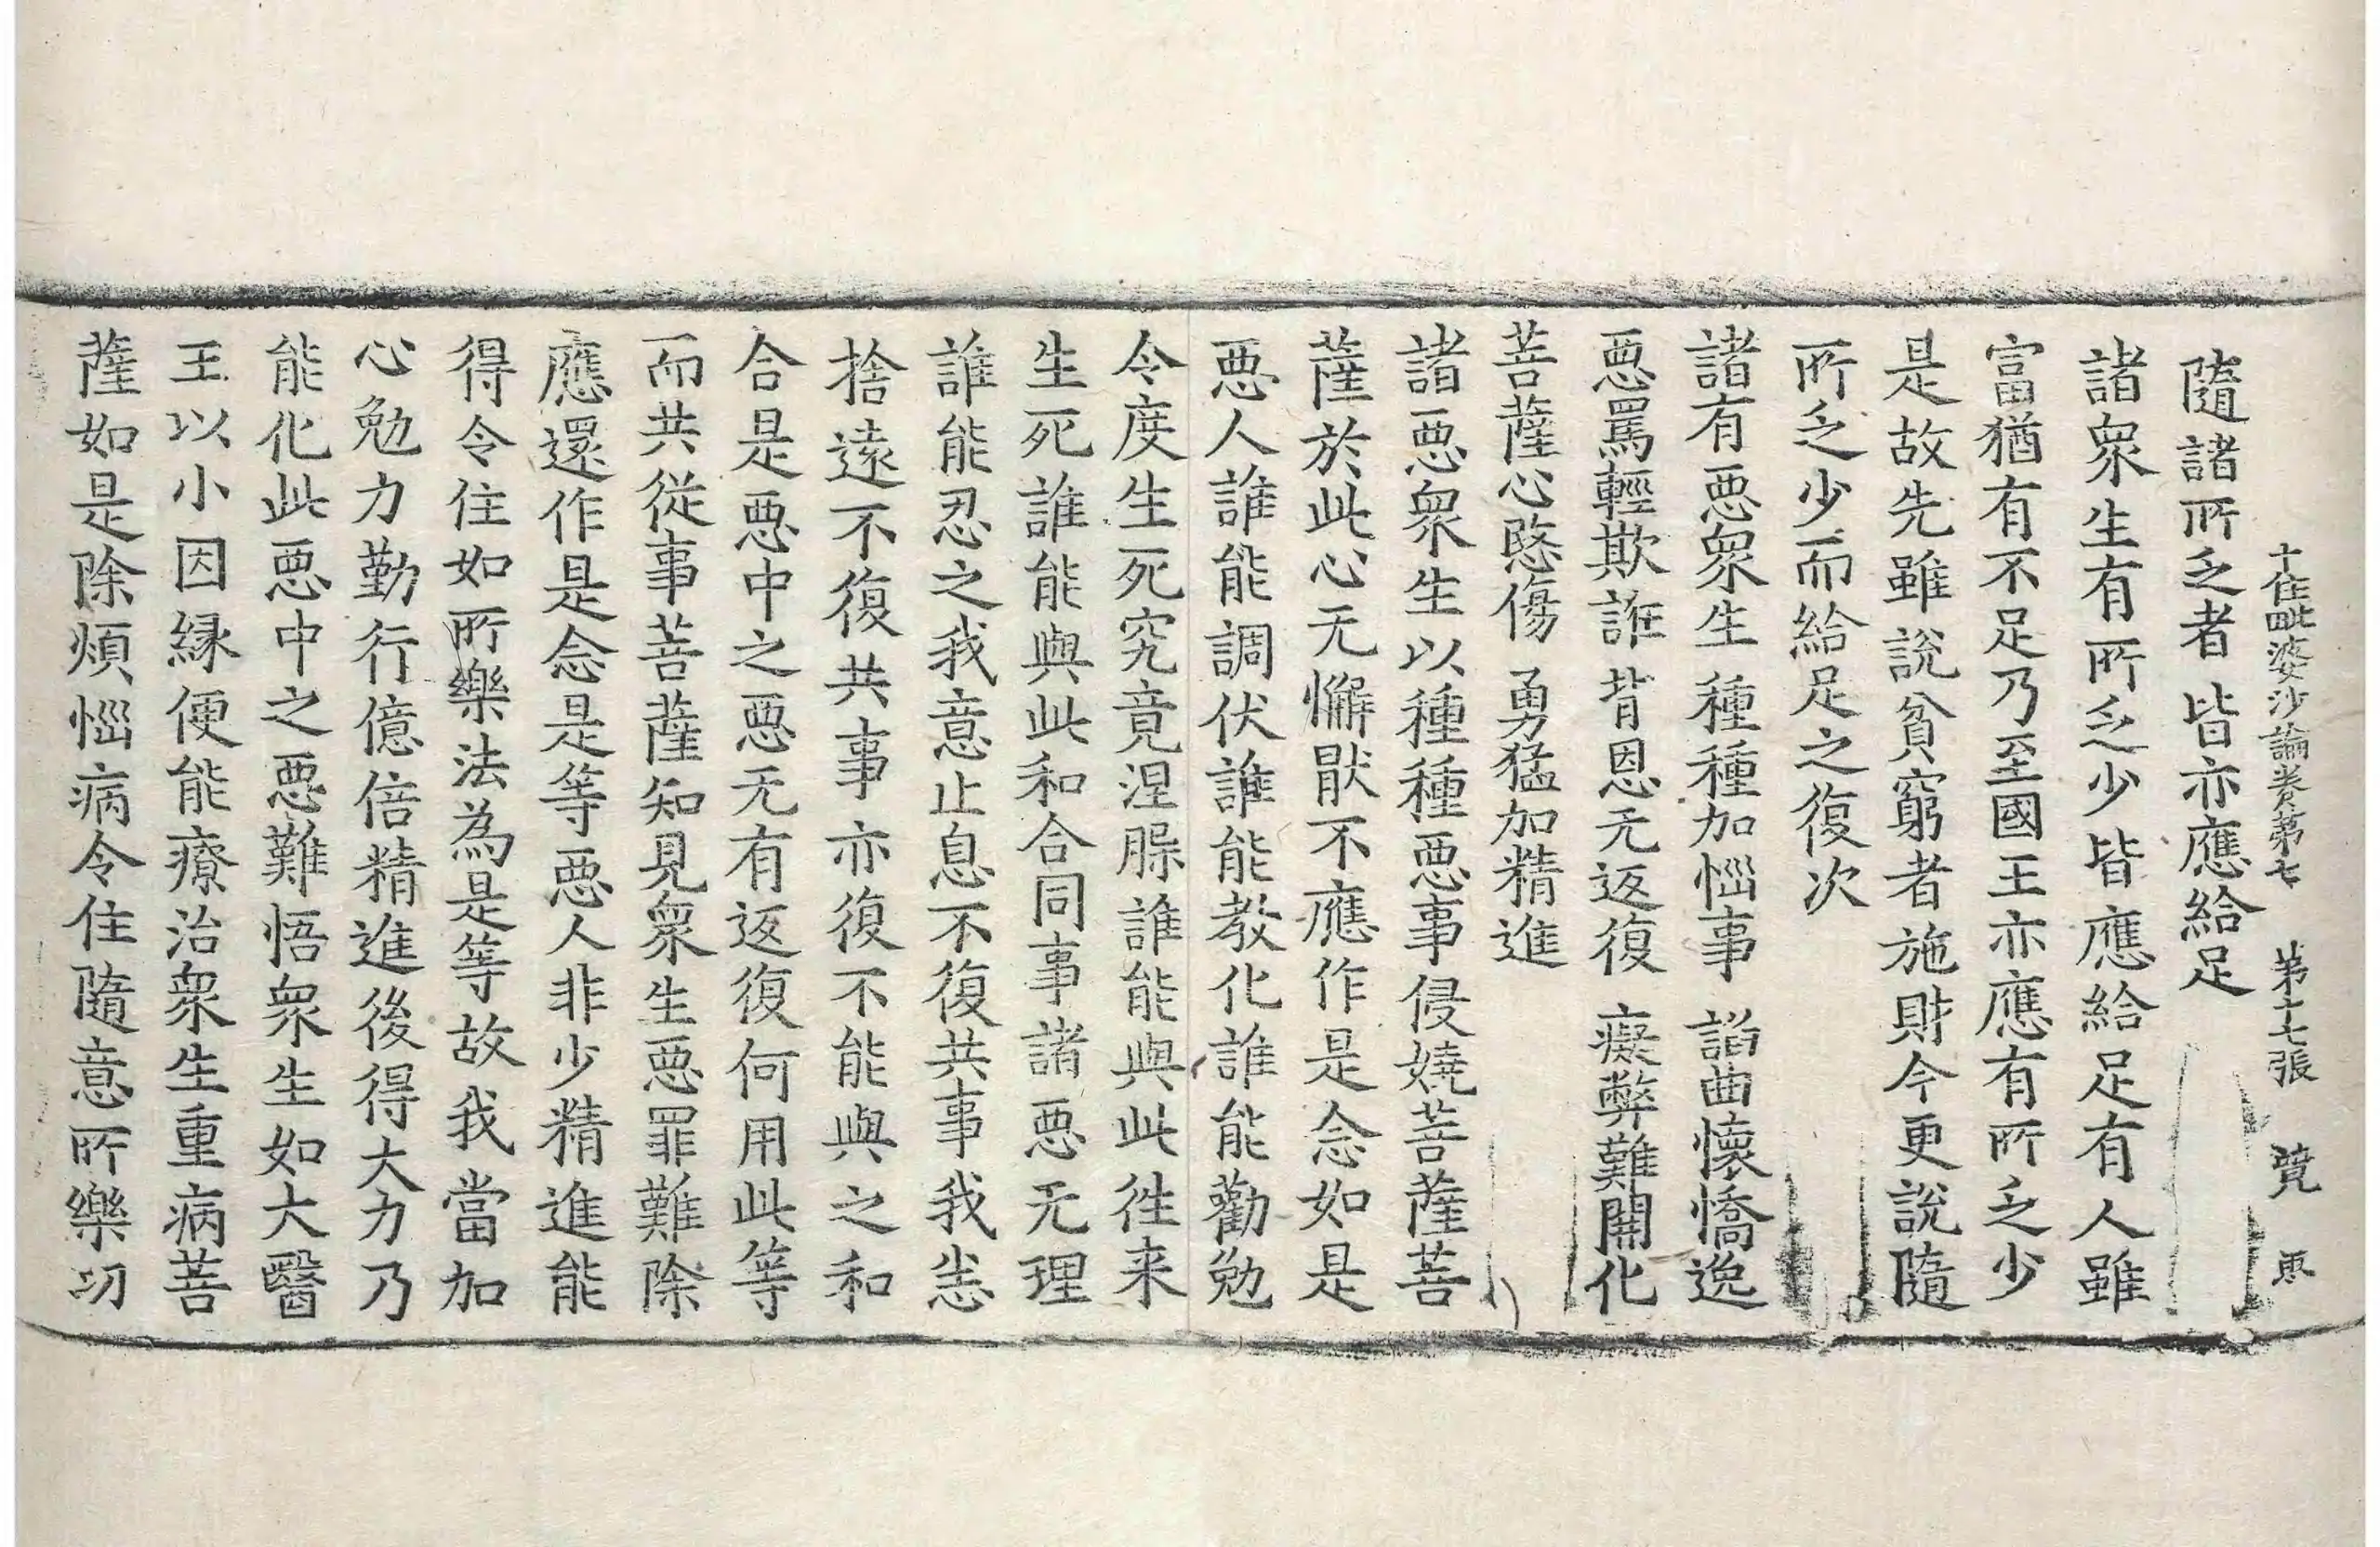 十住毗婆沙論卷第七 第十七張 覽
隨諸所乏者 皆亦應給足
諸衆生有所乏少皆應給足有人雖
富猶有不足乃至國王亦應有所乏少
是故先雖說貧窮者施財今更說隨
所乏少而給足之復次
諸有惡衆生 種種加惱事 謟曲懷憍逸
惡罵輕欺誑 背恩无返復 癡弊難開化
菩薩心愍傷 勇猛加精進
諸惡衆生以種種惡事侵嬈菩薩菩
薩於此心无懈猒不應作是念如是
惡人誰能調伏誰能教化誰能勸勉
令度生死究竟涅槃誰能與此徃来
生死誰能與此和合同事諸惡无理
誰能忍之我意止息不復共事我恙
捨遠不復共事亦復不能與之和
合是惡中之惡无有返復何用此等
而共從事菩薩知見衆生惡罪難除
應還作是念是等惡人非少精進能
得令住如所樂法為是等故我當加
心勉力勤行億倍精進後得大力乃
能化此惡中之惡難悟衆生如大醫
王以小因緣便能療治衆生重病菩
薩如是除煩惱病令住隨意所樂功